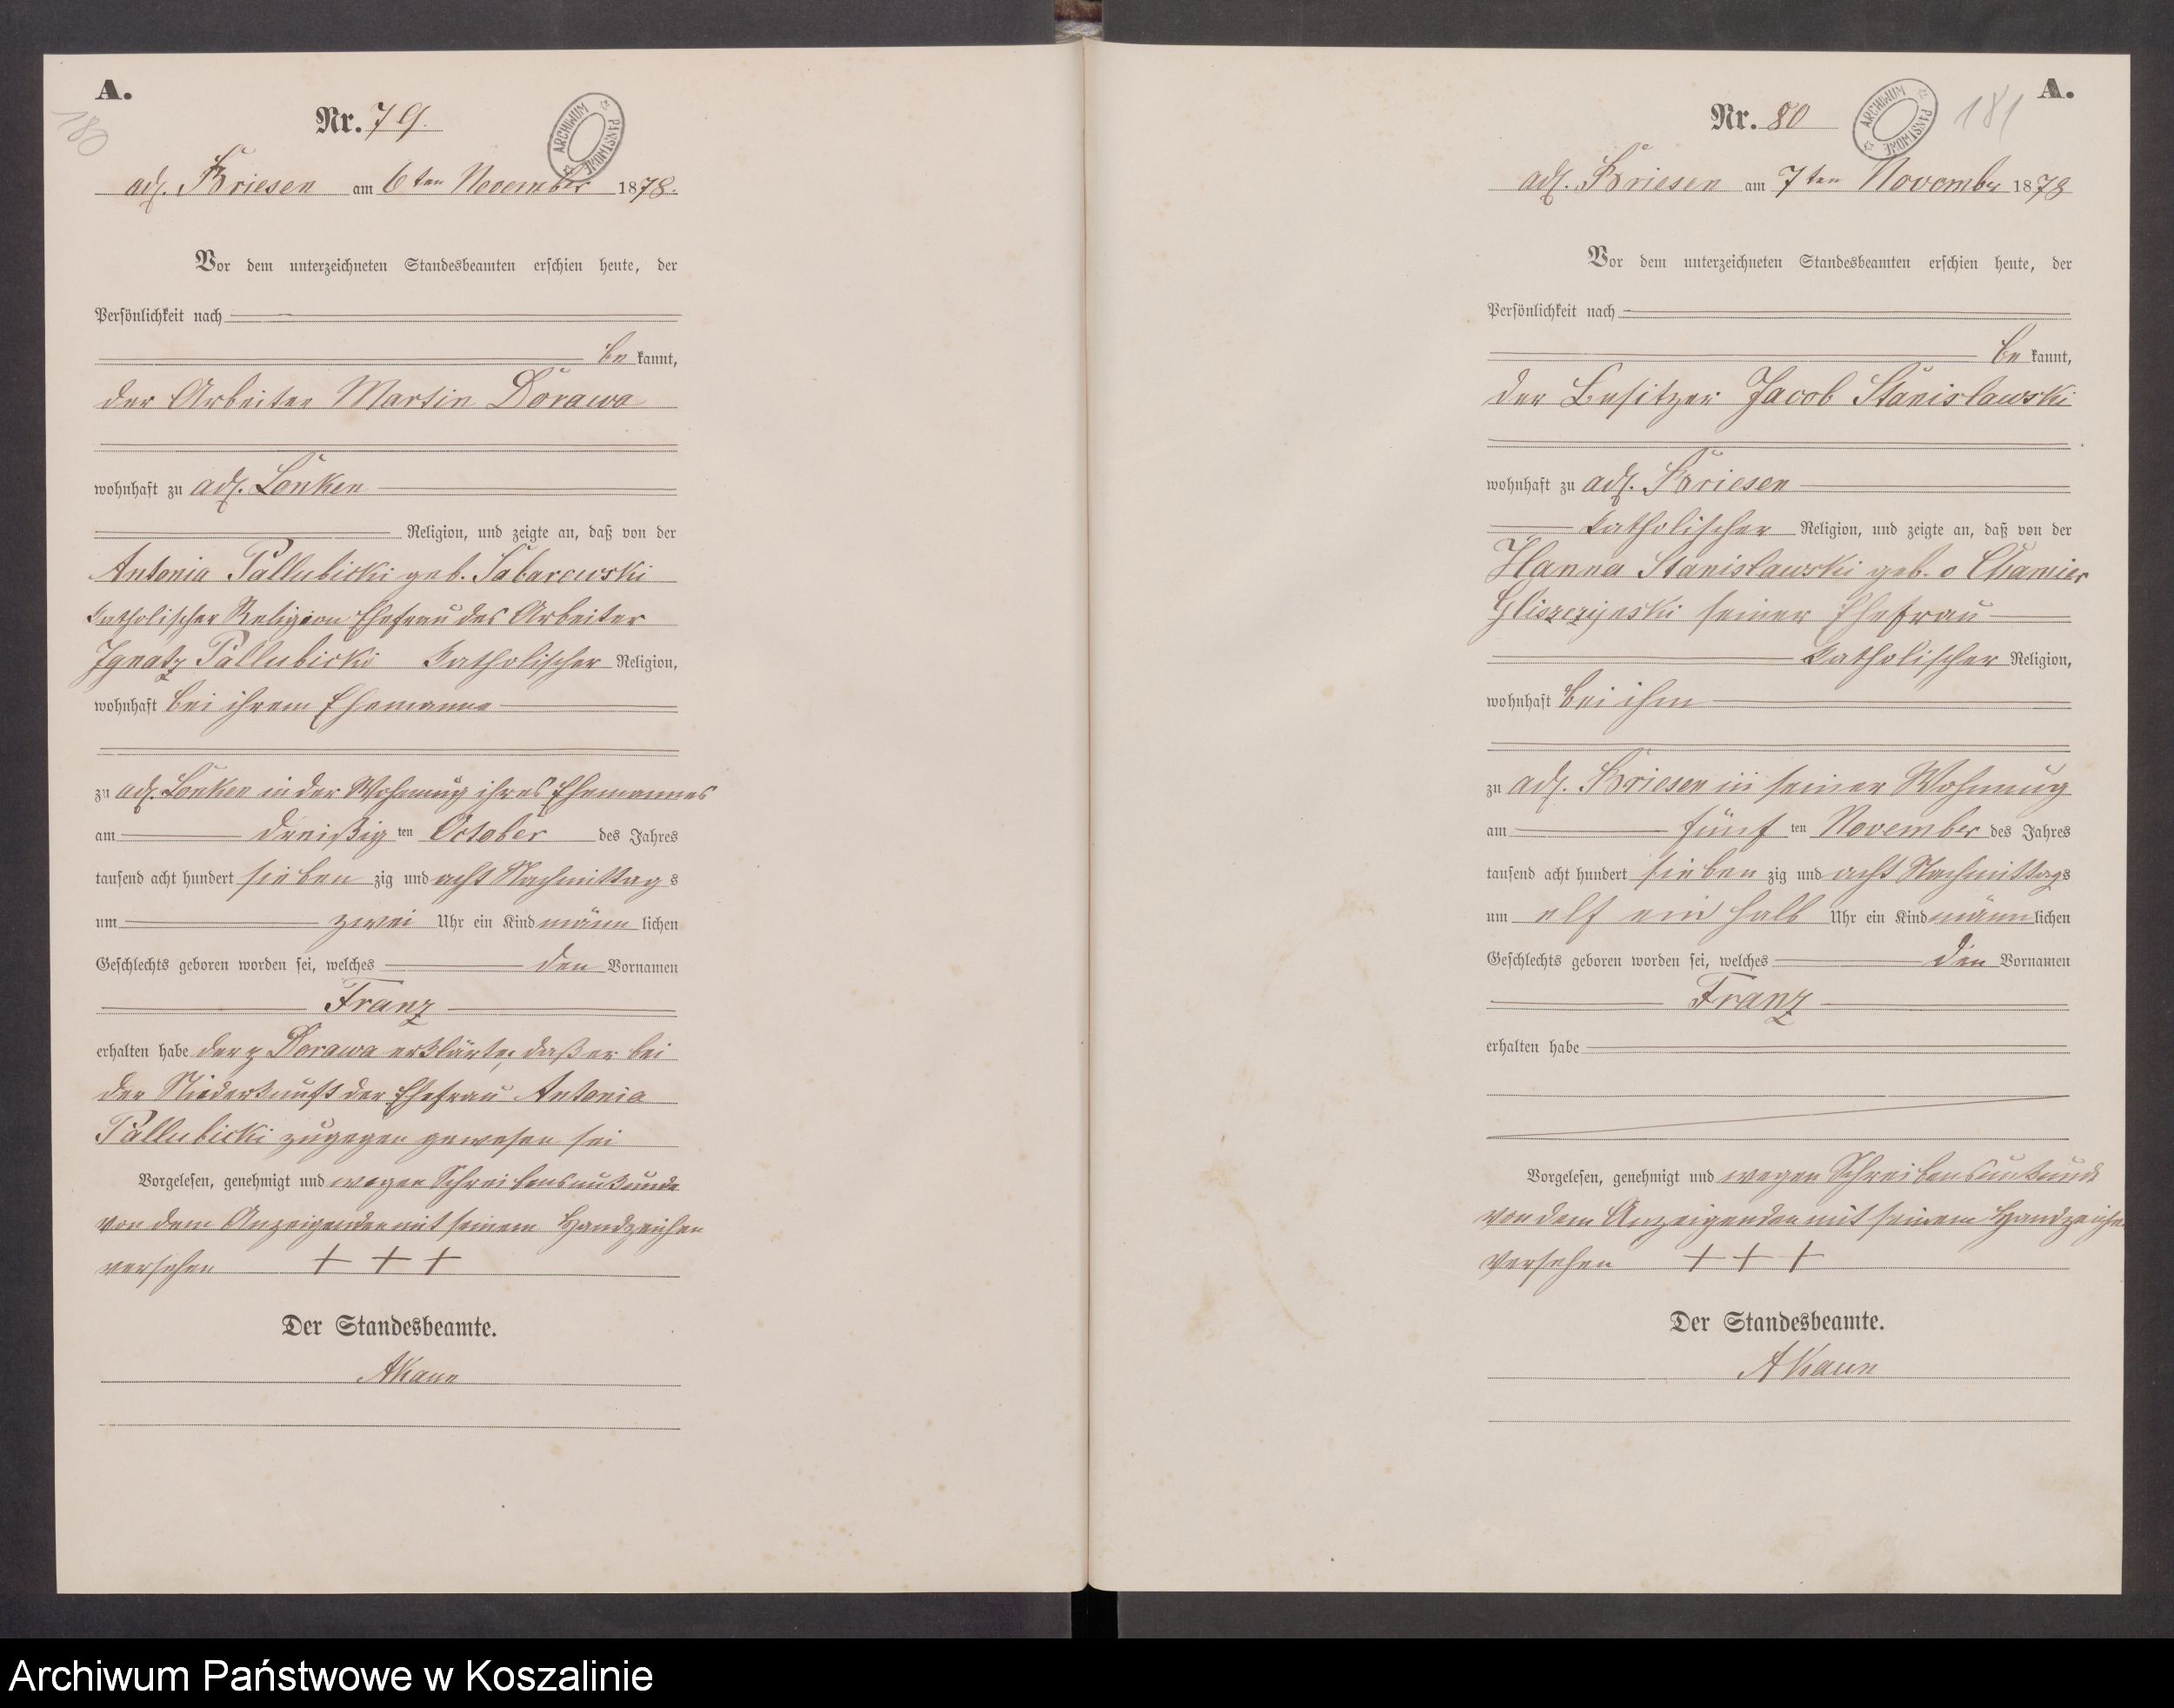 A.
180
Nr. 79.
ARCHIWUM PAŃSTWOWE
adl. Briesen am 6ten November 1878.
Vor dem unterzeichneten Standesbeamten erschien heute, der
Persönlichkeit nach
be kannt,
der Arbeiter Martin Dorawa
wohnhaft zu adl. Lonken
Religion, und zeigte an, daß von der
Antonia Pallubicki geb.
katholischer Religion Ehefrau des Arbeiter
Ignatz Pallubicki katholischer Religion,
wohnhaft bei ihrem Ehemanne
zu adl. Lonken in der Wohnung ihres Ehemannes
am dreißig ten October des Jahres
tausend acht hundert sieben zig und acht Nachmittag s
um zwei Uhr ein Kind männ lichen
Geschlechts geboren worden sei, welches den Vornamen
Franz
erhalten habe der p Dorawa erklärte, daß er bei
der Niederkunft der Ehefrau Antonia
Pallubicki zugegen gewesen sei
Vorgelesen, genehmigt und wegen Schreibensunkunde
von dem Anzeigenden mit seinem Handzeichen
versehen + + +
Der Standesbeamte.
AKaun
A.
181
Nr. 80
ARCHIWUM PAŃSTWOWE
adl. Briesen am 7ten November 1878
Vor dem unterzeichneten Standesbeamten erschien heute, der
Persönlichkeit nach
be kannt,
der Besitzer Jacob Stanislawski
wohnhaft zu adl. Briesen
katholischer Religion, und zeigte an, daß von der
Hanna Stanislawski geb. v Chamier
Gliszczynski seiner Ehefrau
katholischer Religion,
wohnhaft bei ihm
zu adl. Briesen in seiner Wohnung
am fünf ten November des Jahres
tausend acht hundert sieben zig und acht Nachmittags
um elf ein halb Uhr ein Kind männ lichen
Geschlechts geboren worden sei, welches den Vornamen
Franz
erhalten habe
Vorgelesen, genehmigt und wegen Schreibensunkunde
von dem Anzeigenden mit seinem Handzeichen
versehen + + +
Der Standesbeamte.
AKaun
Archiwum Państwowe w Koszalinie